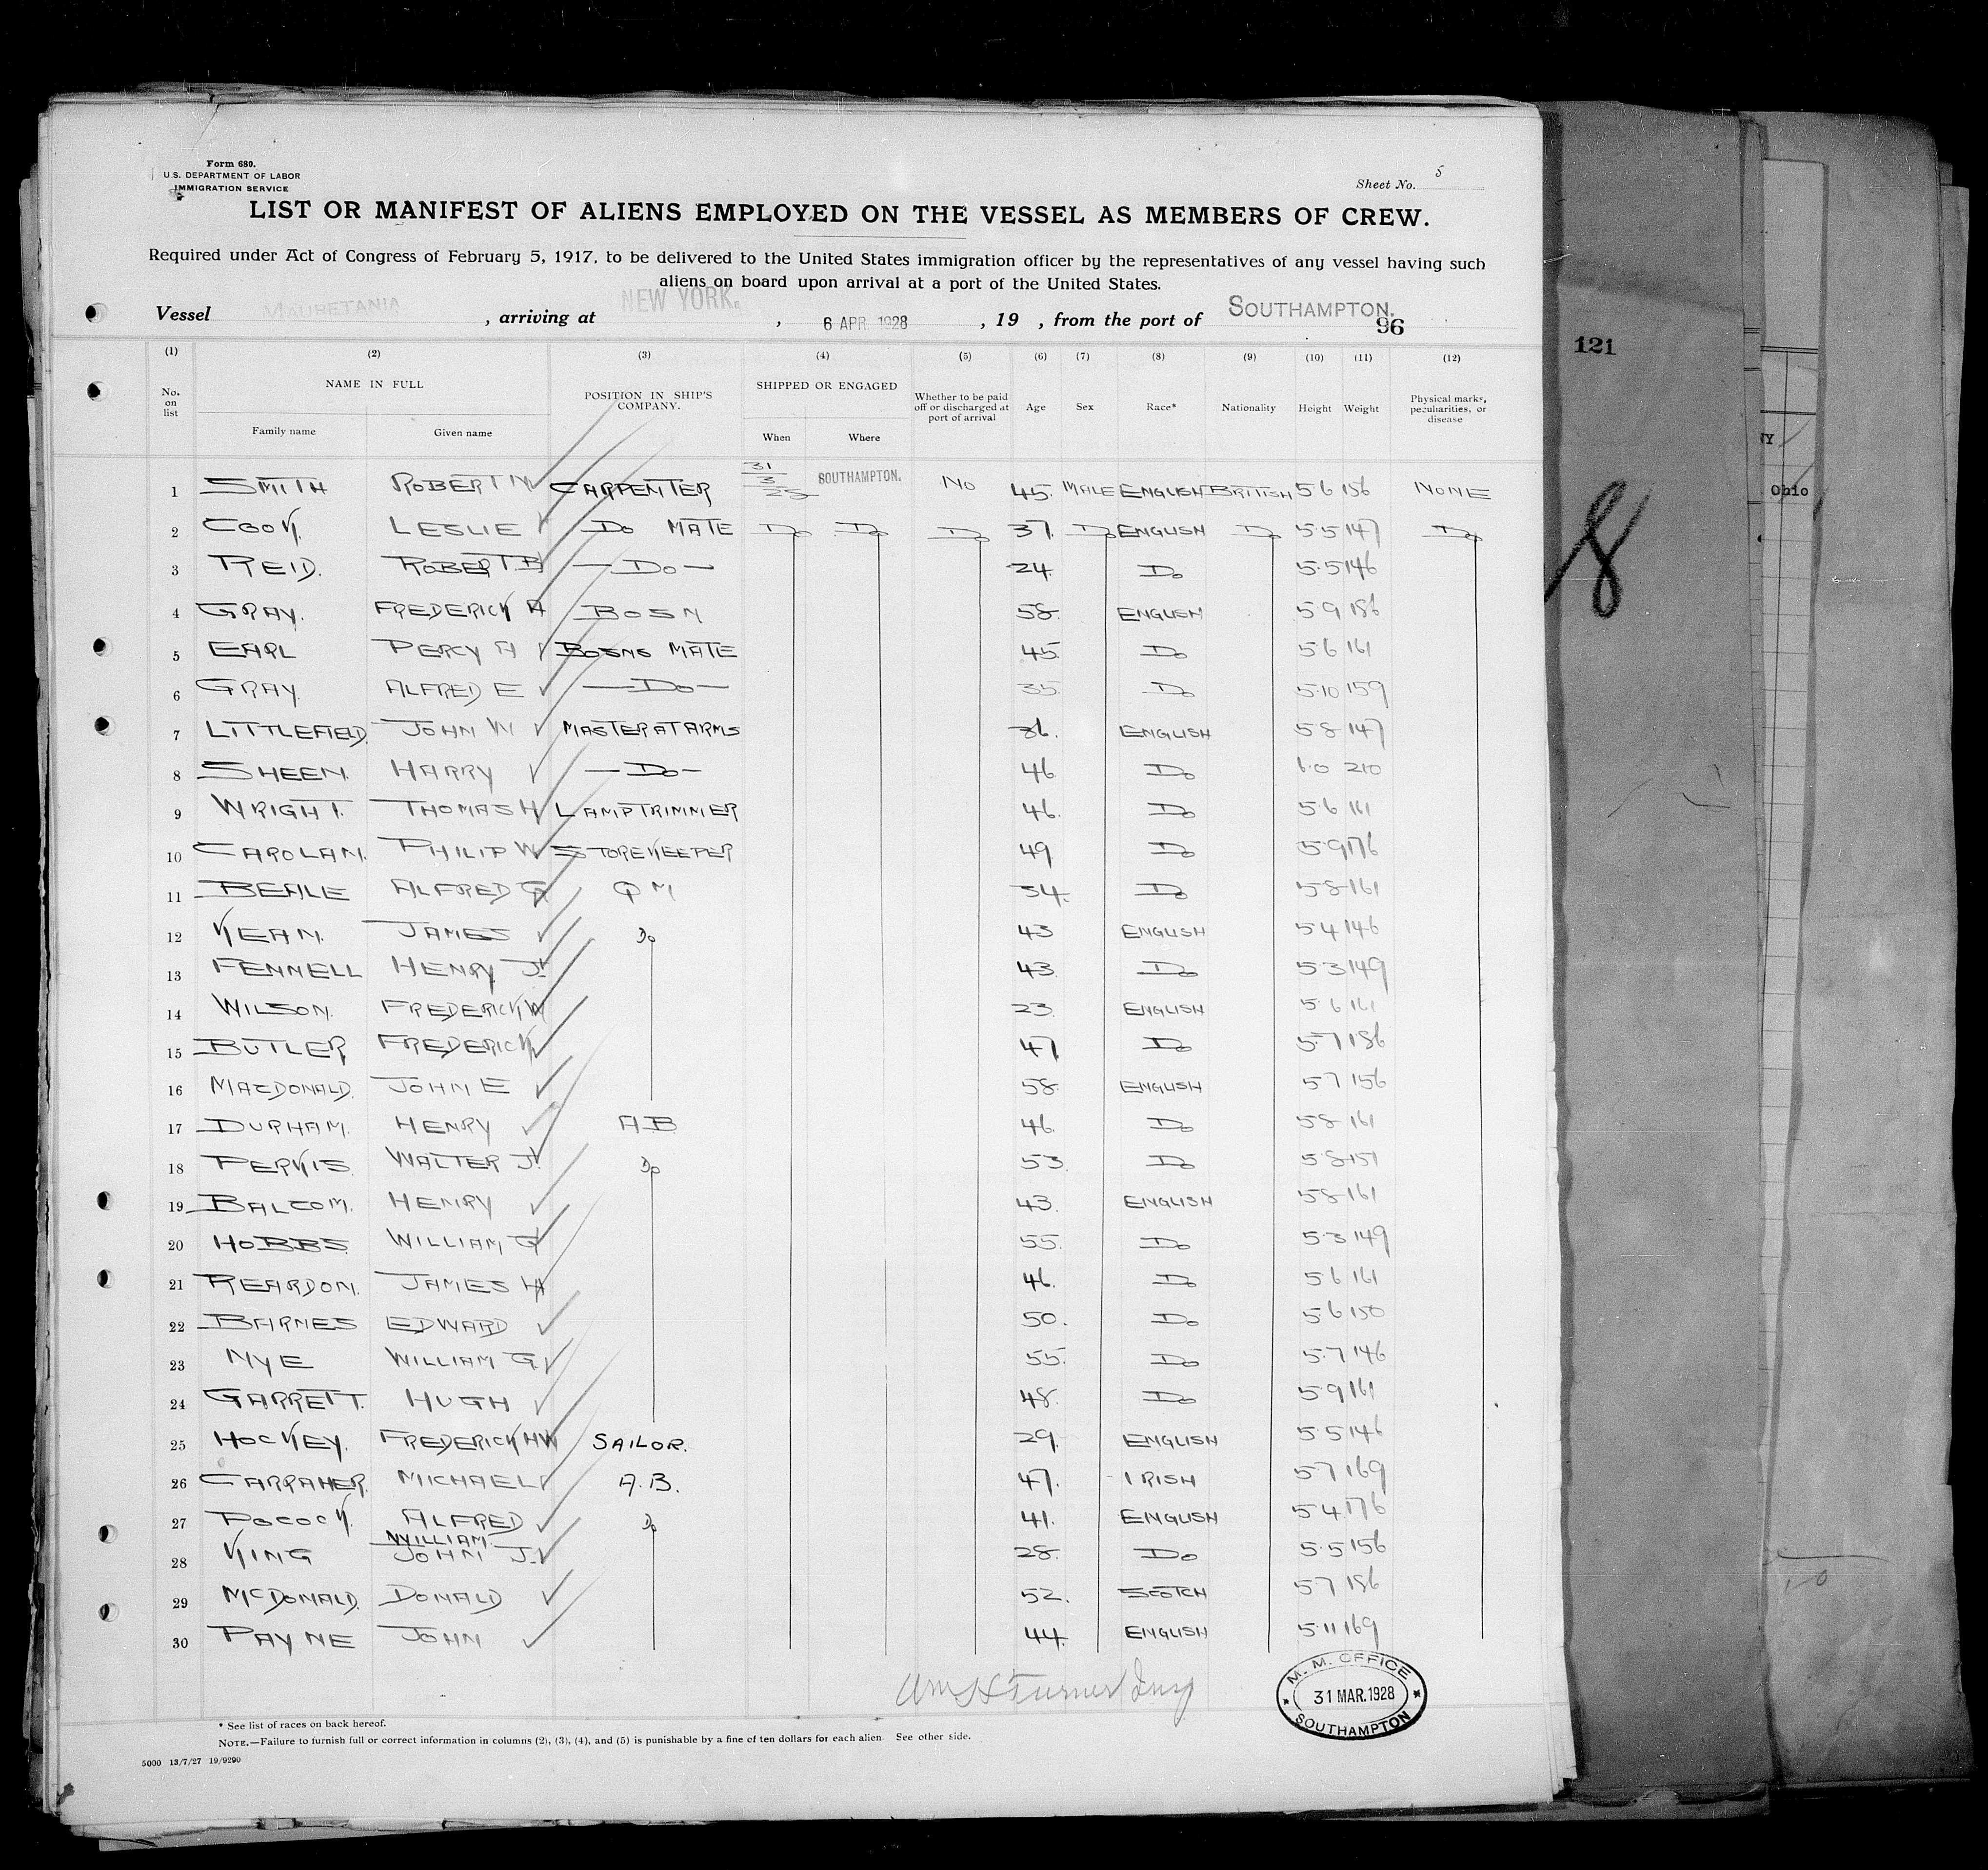 Form 680.
U.S. DEPARTMENT OF LABOR
IMMIGRATION SERVICE
Sheet No. 5
LIST OR MANIFEST OF ALIENS EMPLOYED ON THE VESSEL AS MEMBERS OF CREW.
Required under Act of Congress of February 5, 1917, to be delivered to the United States immigration officer by the representatives of any vessel having such
aliens on board upon arrival at a port of the United States.
Vessel MAURETANIA, arriving at NEW YORK., 6 APR 1928, 19 , from the port of SOUTHAMPTON.
96
121
(1) (2) (3) (4) (5) (6) (7) (8) (9) (10) (11) (12)
No. on list NAME IN FULL Family name Given name POSITION IN SHIP'S COMPANY. SHIPPED OR ENGAGED When Where Whether to be paid off or discharged at port of arrival Age Sex Race* Nationality Height Weight Physical marks, peculiarities, or disease
1 SMITH ROBERT CARPENTER 31/3/28 SOUTHAMPTON. NO 45. MALE ENGLISH BRITISH 5 6 156 NONE
2 COOK. LESLIE DO MATE DO DO DO 37. DO ENGLISH DO 5 5 147 DO
3 REID. ROBERT. B — DO — 24. DO 5.5 146
4 GRAY. FREDERICK A BOSN 58. ENGLISH 5.9 186
5 EARL PERCY A BOSNS MATE 45. DO 5 6 161
6 GRAY. ALFRED E — DO — 35. DO 5.10 159
7 LITTLEFIELD. JOHN W MASTER AT ARMS 36. ENGLISH 5 8 147
8 SHEEN. HARRY — DO — 46 DO 6.0 210
9 WRIGHT. THOMAS H LAMPTRIMMER 46. DO 5.6 161
10 CAROLAN. PHILIP W STOREKEEPER 49 DO 5.9 176
11 BEALE ALFRED G Q M 34. DO 5.8 161
12 KEAN. JAMES DO 43 ENGLISH 5 4 146
13 FENNELL HENRY J. 43. DO 5.3 149
14 WILSON. FREDERICK W 23. ENGLISH 5.6 161
15 BUTLER FREDERICK 47 DO 5.7 186
16 MACDONALD. JOHN E 58. ENGLISH 5 7 156
17 DURHAM. HENRY A.B. 46. DO 5.8 161
18 PERKIS. WALTER J. DO 53. DO 5.8 151
19 BALCOM. HENRY 43. ENGLISH 5.8 161
20 HOBBS. WILLIAM G 55. DO 5.3 149
21 REARDON. JAMES H 46. DO 5.6 161
22 BARNES EDWARD 50. DO 5.6 150
23 NYE WILLIAM G. 55. DO 5.7 146
24 GARRETT. HUGH 48. DO 5.9 161
25 HOCKEY. FREDERICK H W SAILOR. 29. ENGLISH 5.5 146
26 CARRAHER. MICHAEL A.B. 47. IRISH 5.7 169
27 POCOCK. ALFRED DO 41. ENGLISH 5.4 176
WILLIAM.
28 KING JOHN J. 28. DO 5.5 156
29 MCDONALD. DONALD 52. SCOTCH 5.7 186
30 PAYNE JOHN 44. ENGLISH 5.11 169
Wm H Turner Insp
M. M. OFFICE
31 MAR. 1928
SOUTHAMPTON
* See list of races on back hereof.
NOTE.—Failure to furnish full or correct information in columns (2), (3), (4), and (5) is punishable by a fine of ten dollars for each alien. See other side.
5000 13/7/27 19/9290
8
NY
Ohio